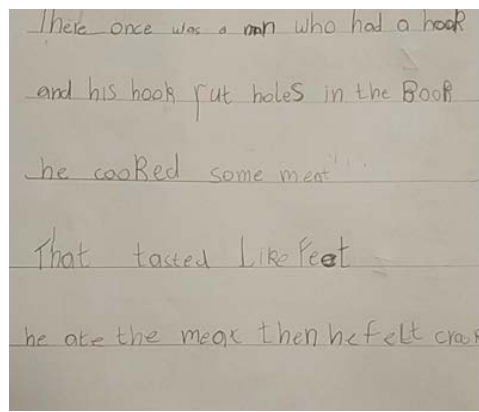 There once was a man who had a hook
and his hook put holes in the Book
he cooked some meat
That tasted Like Feet
he ate the meat then he felt